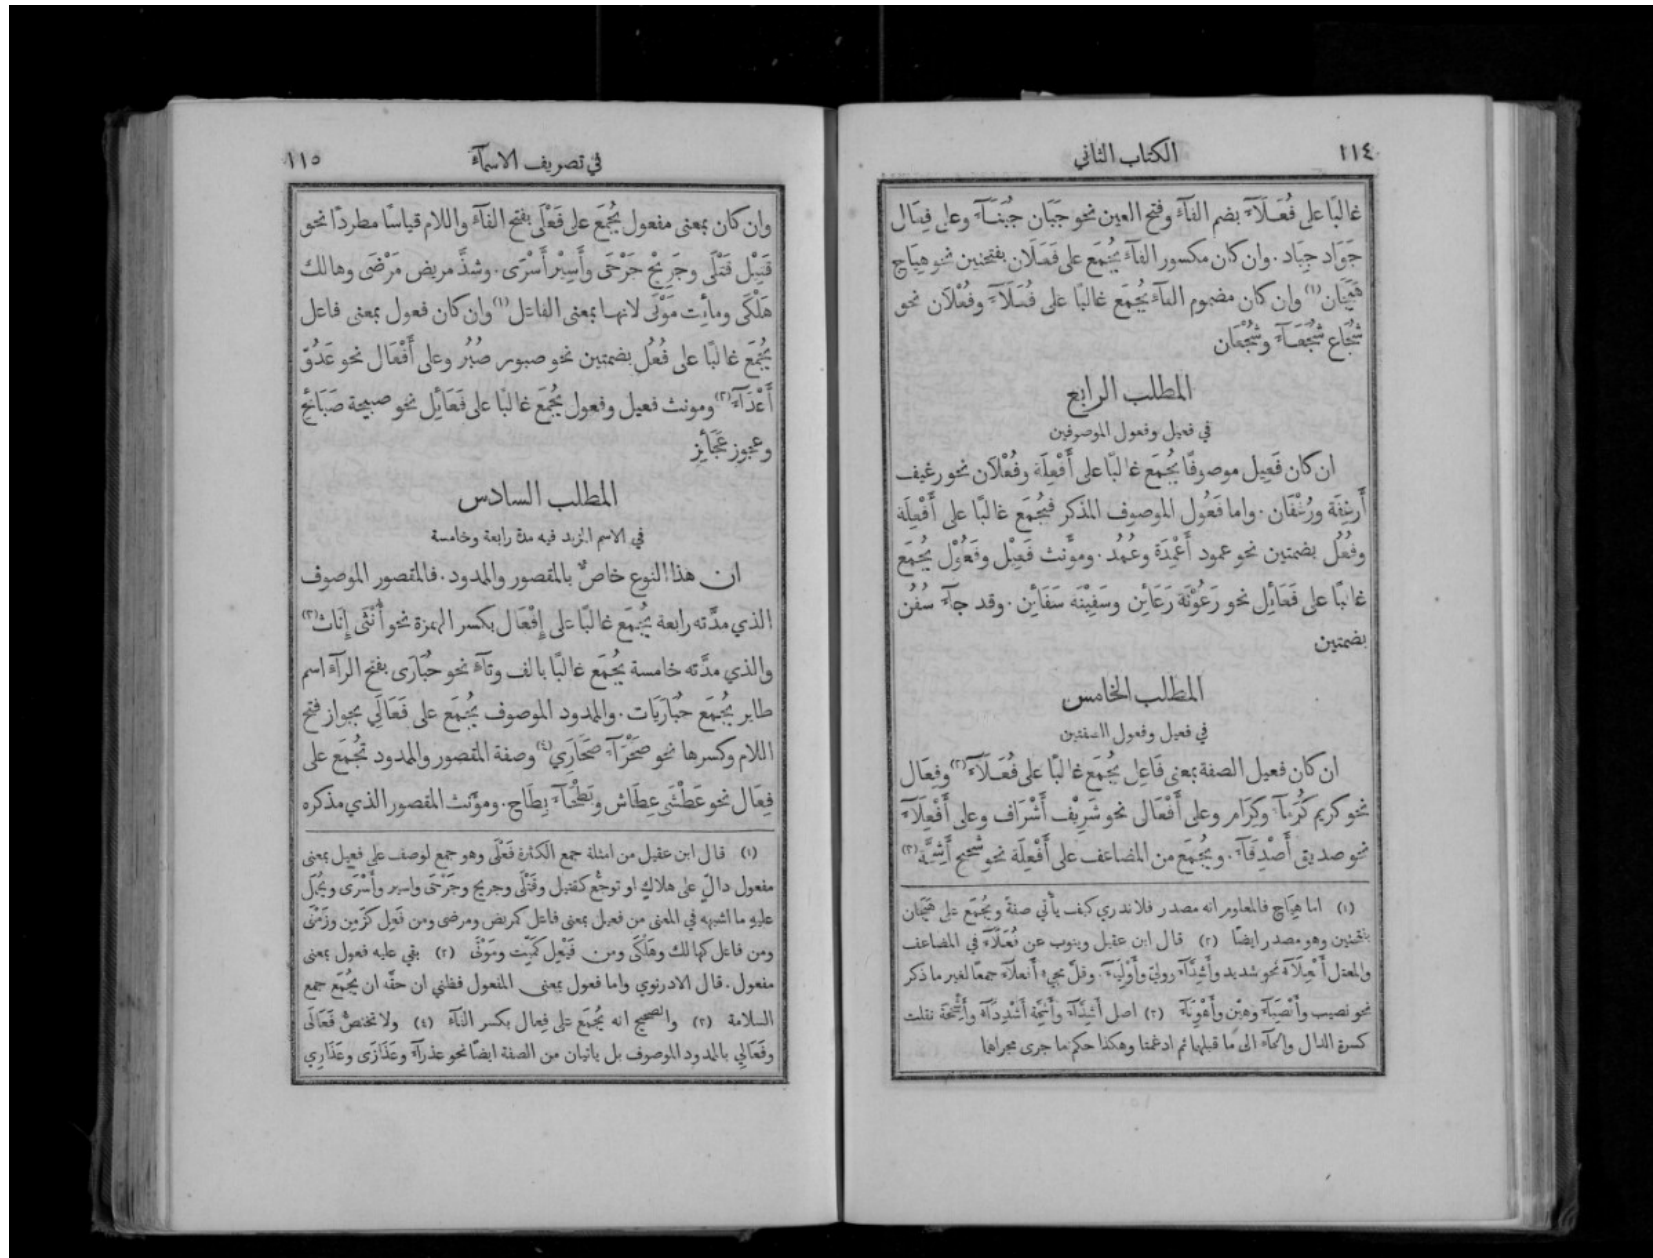 ١١٤
الكتاب الثاني
غالبًا على فُعَلَآءَ بضم الفآء وفتح العين نحو جَبَان جُبَنَآء وعلى فِعَال
جَوَاد جِيَاد. وان كان مكسور الفآء يُجْمَع على فَعَلَان بفتحتين نحو هِيَاج
هَيَجَان (١) وان كان مضموم الفآء يُجْمَع غالبًا على فُعَلَآءَ وفُعْلَان نحو
شُجَاع شُجَعَآء وشُجْعَان
المطلب الرابع
في فعيل وفعول الموصوفين
ان كان فَعِيل موصوفًا يُجْمَع غالبًا على أَفْعِلَة وفُعْلَان نحو رغيف
أَرغِفَة ورُغْفَان. واما فَعُول الموصوف المذكر فيُجْمَع غالبًا على أَفْعِلَة
وفُعُل بضمتين نحو عمود أَعْمِدَة وعُمُد. ومؤَنث فَعِيْل وفَعُوْل يُجْمَع
غالبًا على فَعَائِل نحو رَعُوْنَة رَعَائِن وسَفِيْنَة سَفَائِن. وقد جآءَ سُفُن
بضمتين
المطلب الخامس
في فعيل وفعول الصفتين
ان كان فعيل الصفة بمعنى فَاعِل يُجْمَع غالبًا على فُعَلَآءَ (٢) وفِعَال
نحو كريم كُرَمَآء وكِرَام وعلى أَفْعَال نحو شَرِيْف أَشْرَاف وعلى أَفْعِلَآءَ
نحو صديق أَصْدِقَآء. ويُجْمَع من المضاعف على أَفْعِلَة نحو شحيح أَشِحَّة (٣)
(١) اما هِيَاج فالمعلوم انه مصدر فلا ندري كيف يأْتي صفة ويُجْمَع على هَيَجَان
بفتحتين وهو مصدر ايضًا (٢) قال ابن عقيل وينوب عن فُعَلَآء في المضاعف
والمعتل أَفْعِلَآء نحو شديد وأَشِدَّآء وولي وأَوْلِيَآء. وقلَّ مجيء أَفعلآء جمعًا لغير ما ذكر
نحو نصيب وأَنْصِبَآء وهيّن وأَهْوِنَآء (٣) اصل أَشِدَّآء وأَشِحَّة أَشْدِدَآء وأَشْحِحَة نقلت
كسرة الدال والحآء الى ما قبلها ثم ادغمتا وهكذا حكم ما جرى مجراهما
في تصريف الاسمآء
١١٥
وان كان بمعنى مفعول يُجْمَع على فَعْلَى بفتح الفآء واللام قياسًا مطردًا نحو
قَتِيْل قَتْلَى وجَرِيْح جَرْحَى وأَسِيْر أَسْرَى. وشذَّ مريض مَرْضَى وهالك
هَلْكَى ومائِت مَوْتَى لانها بمعنى الفاعل (١) وان كان فعول بمعنى فاعل
يُجْمَع غالبًا على فُعُل بضمتين نحو صبور صُبُر وعلى أَفْعَال نحو عَدُوّ
أَعْدَآء (٢) ومونث فعيل وفعول يُجْمَع غالبًا على فَعَائِل نحو صبيحة صَبَائِح
وعجوز عَجَائِز
المطلب السادس
في الاسم المزيد فيه مدة رابعة وخامسة
ان هذا النوع خاصٌ بالمقصور والممدود. فالمقصور الموصوف
الذي مدَّته رابعة يُجْمَع غالبًا على إِفْعَال بكسر الهمزة نحو أُنْثَى إِنَاث (٣)
والذي مدَّته خامسة يُجْمَع غالبًا بالف وتآء نحو حُبَارَى بفتح الرآء اسم
طاير يُجْمَع حُبَارَيَات. والممدود الموصوف يُجْمَع على فَعَالَي بجواز فتح
اللام وكسرها نحو صَحْرَآء صَحَارَِي (٤) وصفة المقصور والممدود تُجْمَع على
فِعَال نحو عَطْشَى عِطَاش وبَطْحَآء بِطَاح. ومؤَنث المقصور الذي مذكره
(١) قال ابن عقيل من امثلة جمع الكثرة فَعْلَى وهو جمع لوصف على فعيل بمعنى
مفعول دالٍّ على هلاكٍ او توجُّع كقتيل وقَتْلَى وجريح وجَرْحَى واسير وأَسْرَى ويُحْمَل
عليهِ ما اشبهه في المعنى من فعيل بمعنى فاعل كمريض ومرضى ومن فَعِل كزَمِن وزَمْنَى
ومن فاعل كهالك وهَلْكَى ومن فَيْعِل كَمَيِّت ومَوْتَى (٢) بقي عليه فعول بمعنى
مفعول. قال الادرنوي واما فعول بمعنى المفعول فظني ان حقَّه ان يُجْمَع جمع
السلامة (٣) والصحيح انه يُجْمَع على فِعال بكسر الفآء (٤) ولا تختصُّ فَعَالَى
وفَعَالِي بالممدود الموصوف بل ياتيان من الصفة ايضًا نحو عذرآء وعَذَارَى وعَذَارِي